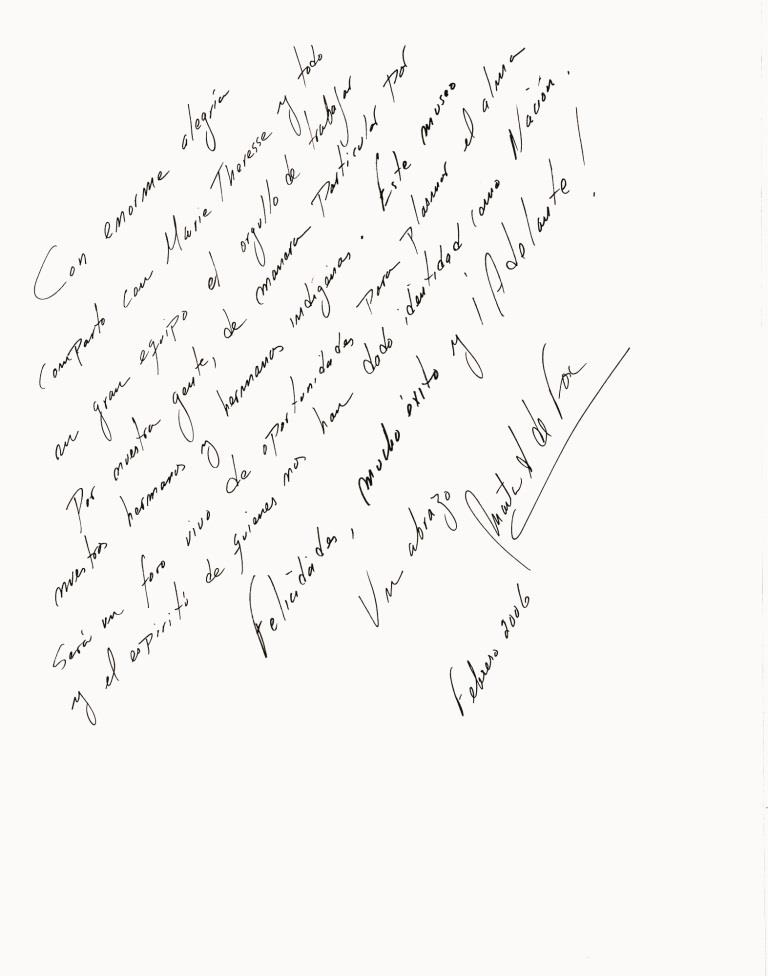 Con enorme alegría
Comparto con Marie Theresse y todo
un gran equipo el orgullo de trabajar
Por nuestra gente, de manera Particular por
nuestros hermanos y hermanas indígenas. Este museo
Será un foro vivo de oportunidades para Plasmar el alma
y el espíritú de quienes nos han dado identidad como Nación.
Felicidades, mucho éxito y ¡Adelante!
Un abrazo
Marta S de Fox
Febrero 2006